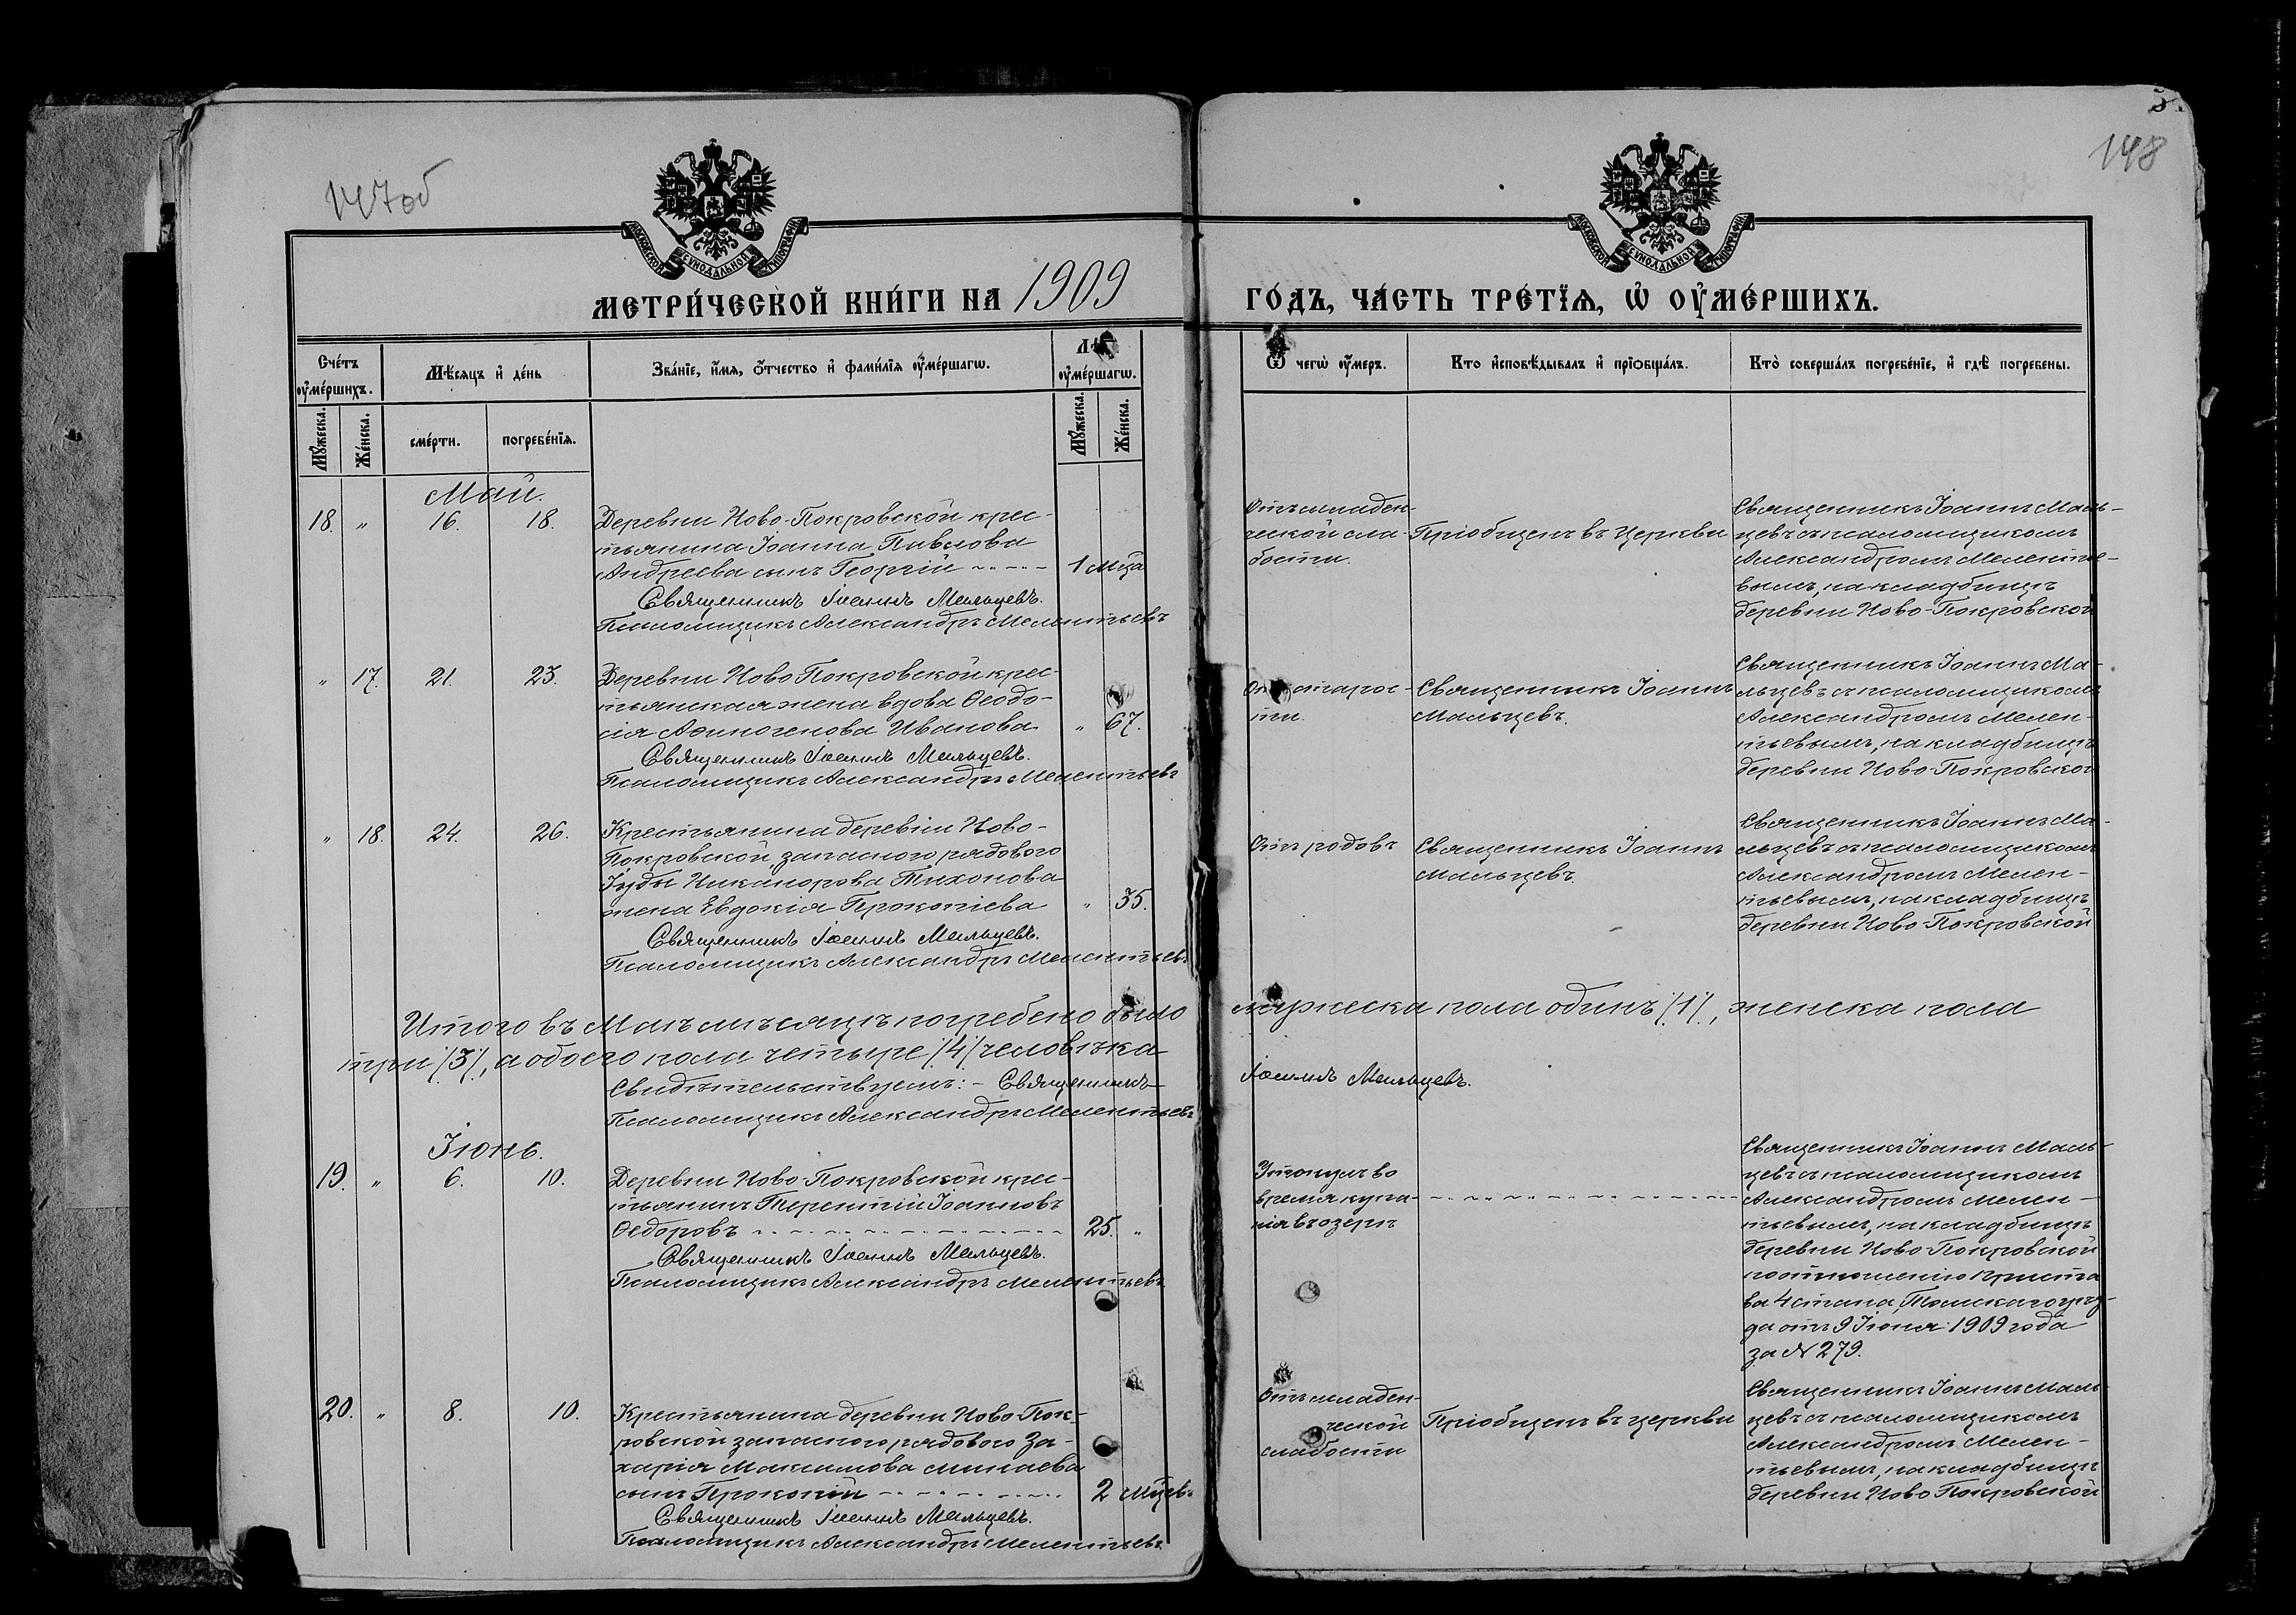 147об
148
5
МОСКОВСКОЙ СѴНОДАЛЬНОЙ ТИПОГРАФІИ
МОСКОВСКОЙ СѴНОДАЛЬНОЙ ТИПОГРАФІИ
МЕТРИ́ЧЕСКОЙ КНИ́ГИ НА 1909
ГО́ДЪ, ЧА́СТЬ ТРЕ́ТЇѦ, Ѡ҆ ОУ҆МЕ́РШИХЪ.
Сче́тъ оу҆ме́ршихъ.
Мѣ́сяцъ и҆ де́нь
Зва́нїе, и҆́мя, о҆́тчество и҆ фами́лїя оу҆ме́ршагѡ.
Лѣ оу҆ме́ршагѡ.
Ѿ чегѡ̀ оу҆́меръ.
Кто̀ и҆сповѣ́дывалъ и҆ прїѻбща́лъ.
Кто̀ соверша́лъ погребе́нїе, и҆ гдѣ̀ погребены.
Мꙋ́жеска.
Же́нска.
сме́рти.
погребе́нїя.
Мꙋ́жеска.
Же́нска.
Май.
18. " 16. 18.
Деревни Ново-Покровской крес-
тьянина Іоанна Павлова
Андреева сынъ Георгій 1 мца
Священникъ Іоаннъ Мальцевъ.
Псаломщикъ Александръ Мелентьевъ
Отъ младен-
ческой сла-
бости.
Пріобщенъ въ Церкви
Священникъ Іоаннъ Маль-
цевъ съ псаломщикомъ
Александромъ Меленте-
вымъ, на кладбищѣ
деревни Ново-Покровской
" 17. 21. 23.
Деревни Ново Покровской крес-
тьянская жена вдова Ѳеодо-
сія Аѳиногенова Иванова " 67.
Священникъ Іоаннъ Мальцевъ.
Псаломщикъ Александръ Мелентьевъ
старос-
ти.
Священникъ Іоаннъ
Мальцевъ.
Священникъ Іоаннъ Ма-
льцевъ съ псаломщикомъ
Александромъ Мелен-
тьевымъ, на кладбищѣ
деревни Ново-Покровской
" 18. 24. 26.
Крестьянина деревни Ново-
Покровской, запасного рядового
Іуды Никанорова Тихонова
жена Евдокія Прокопіева " 35.
Священникъ Іоаннъ Мальцевъ.
Псаломщикъ Александръ Мелентьевъ
Отъ родовъ
Священникъ Іоаннъ
Мальцевъ.
Священникъ Іоаннъ Ма-
льцевъ съ псаломщикомъ
Александромъ Мелен-
тьевымъ, на кладбищѣ
деревни Ново-Покровской
Итого въ Маѣ мѣсяцѣ погребено было мужеска пола одинъ /1/, женска пола
три /3/, а обоего пола четыре /4/ человѣка
Свидѣтельствуемъ: - Священникъ Іоаннъ Мальцевъ.
Псаломщикъ Александръ Мелентьевъ
Іюнь.
19. " 6. 10.
Деревни Ново-Покровской крес-
тьянинъ Терентій Іоанновъ
Ѳедоровъ 25. "
Священникъ Іоаннъ Мальцевъ.
Псаломщикъ Александръ Мелентьевъ
Утонулъ во
время купа-
нія въ озерѣ
Священникъ Іоаннъ Маль-
цевъ съ псаломщикомъ
Александромъ Мелен-
тьевымъ, на кладбищѣ
деревни Ново-Покровской
по отношенію приста
ва 4 стана, Томскаго уѣз-
да отъ 9 Іюня 1909 года
за № 279.
20. " 8. 10.
Крестьянина деревни Ново Пок-
ровской запасного рядового За-
харія Максимова Минаева
сынъ Прокопій 2 мцев.
Священникъ Іоаннъ Мальцевъ.
Псаломщикъ Александръ Мелентьевъ.
Отъ младен-
ческой
слабости
Пріобщенъ въ церкви
Священникъ Іоаннъ Маль-
цевъ съ псаломщикомъ
Александромъ Мелен-
тьевымъ, на кладбищѣ
деревни Ново Покровской